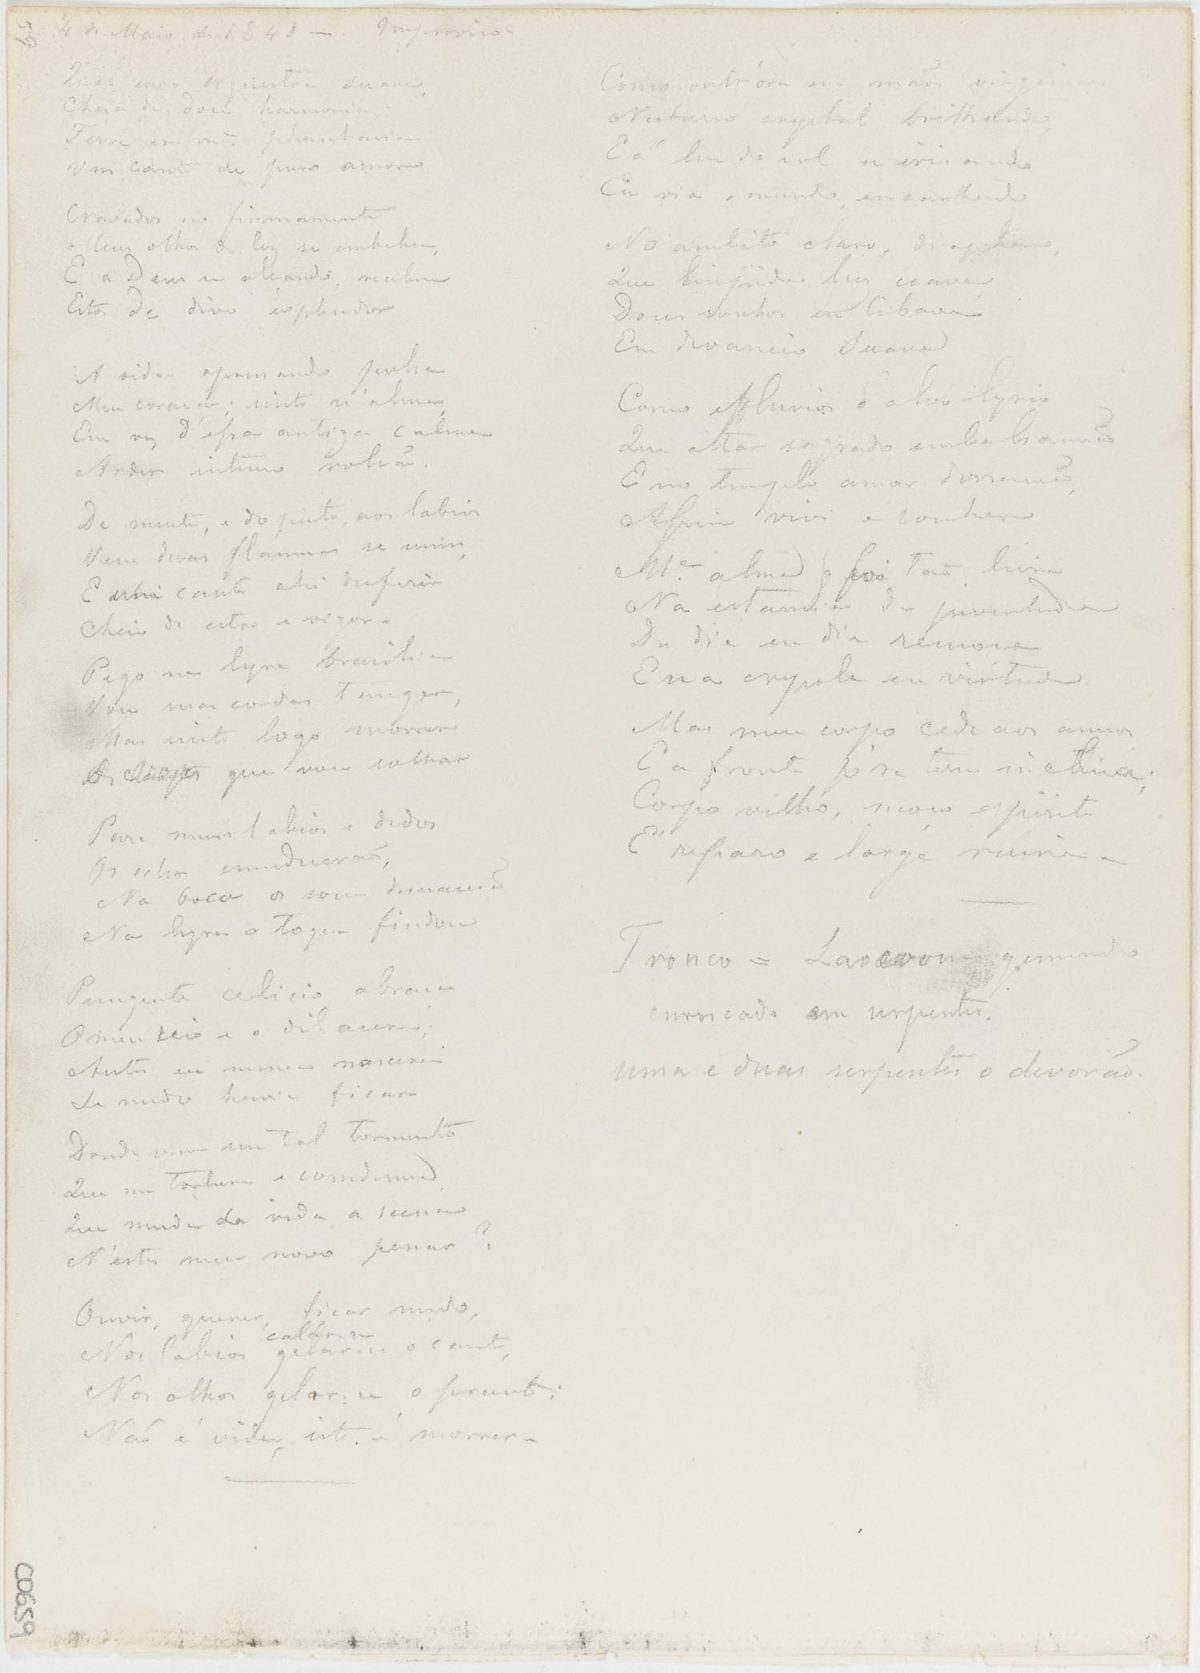 59
4 de Maio de 1848 — Improviso
Qual uma orquestra suave,
Cheia de doce harmonia,
Ferve em m.ª phantasia
Um canto de puro amor
Cravados no firmamento
Meus olhos de luz se embebem,
E a Deus se alçando, recebem
Estro de divo esplendor
A vida apressando pulsa
Meu coração; sinto n'alma,
Em vez d'essa antiga calma
Arder intimo volcão.
Da mente, e do peito, aos labios
Vem duas flammas se unir,
E um canto ahi desferir
Cheio de estro e vigor.
Pego na lyra brasilia
Vou nas cordas tanger,
Mas sinto logo morrer
Os que vou soltar
Para meus labios e dedos
Os echos emudecerão,
Na boca os sons
Na lyra o toque findou
Pungente celicio abraza
O meu seio e o dilacera;
Antes eu nunca nascera
Se mudo havia ficar
Donde vem um tal tormento
Que me tortura e condemna,
Que muda da vida a scena
N'este meu novo penar?
Ouvir, querer, ficar mudo,
calar-se
Nos labios gelar-se o canto,
Nos olhos gelar-se o pranto;
Não é vida, isto é morrer.
Como outr'ora em mãos virgineas
Nectareo crystal brilhando,
E á luz do sol se irisando
Eu via o mundo, encantado
No ambito claro, diaphano,
Que limpida luz coava
Doces sonhos eu libava
Em devaneio suave
Como effluvios d'alvo lyrio
Que altar sagrado embalsamão
E no templo amor derramão,
Assim vivi e sonhei
M.ª alma q foi tão livre
Na estancia da juventude
De dia em dia
E na em virtude.
Mas meu corpo cede aos annos
E a fronte p.ª a terra inclina;
Corpo velho, moço espirito
É e larga ruina
Tronco = Laocoon gemendo
enroscado em serpentes.
uma e duas serpentes o devorão.
CO659